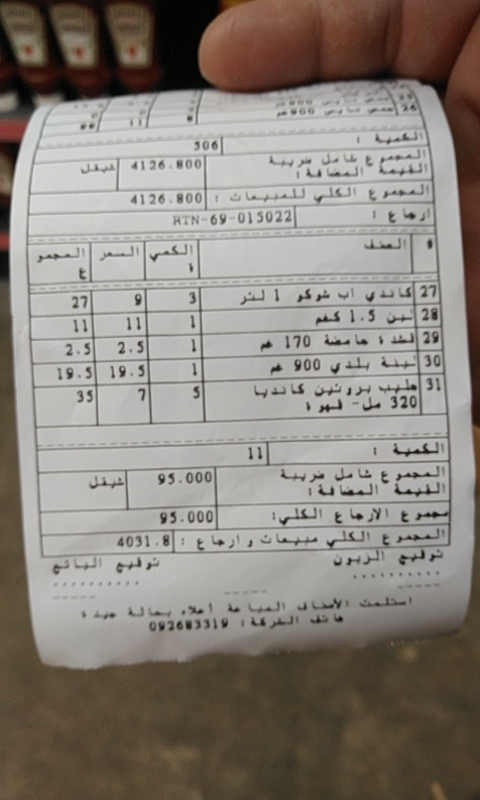 26 حمص بايس 900غم 8 11 88
الكمية : 506
المجموع شامل ضريبة القيمة المضافة: 4126.800 شيقل
المجموع الكلي للمبيعات : 4126.800
ارجاع : RTN-69-015022
# الصنف الكمية السعر المجموع
27 كاندي اب شوكو 1 لتر 3 9 27
28 لبن 1.5 كغم 1 11 11
29 قشدة حامضة 170 غم 1 2.5 2.5
30 لبنة بلدي 900 غم 1 19.5 19.5
31 حليب بروتين كانديا 5 7 35
320 مل- قهوة
الكمية : 11
المجموع شامل ضريبة القيمة المضافة: 95.000 شيقل
مجموع الارجاع الكلي: 95.000
المجموع الكلي مبيعات و ارجاع : 4031.8
توقيع الزبون توقيع البائع
استلمت الأصناف المباعة أعلاه بحالة جيدة
هاتف الشركة: 092683319